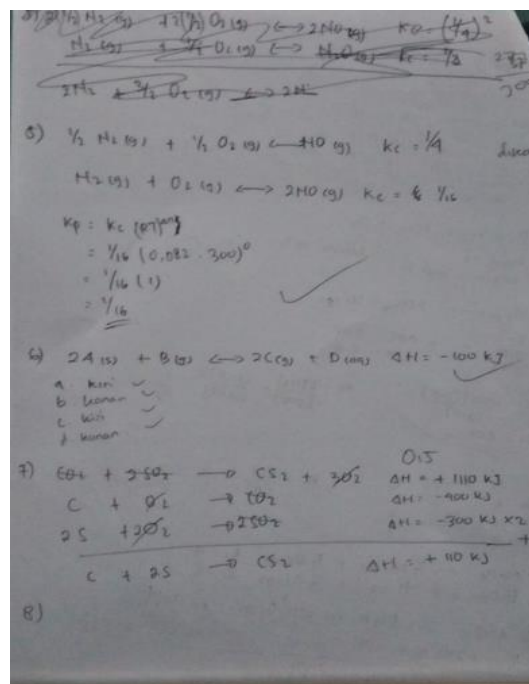 N₂ (g) + ½ O₂ (g) ⟷ N₂O (g)
2N₂ + ³/₂ O₂ (g) ⟷ 2N
5) ½ N₂ (g) + ½ O₂ (g) ⟷ NO (g) Kc = ¼
N₂ (g) + O₂ (g) ⟷ 2NO (g) Kc = 1/16
Kp = Kc (RT)
= 1/16 (0,082 . 300)⁰
= 1/16 (1)
= 1/16
6) 2A (s) + B (g) ⟷ 2C (g) + D (aq) ΔH = -100 kJ
a. kiri
b. kanan
c. kiri
d. kanan
0.5
7) CO₂ + 2SO₂ → CS₂ + 3O₂ ΔH = + 1110 kJ
C + O₂ → CO₂ ΔH = -400 kJ
2S + 2O₂ → 2SO₂ ΔH = -300 kJ x2
+
C + 2S → CS₂ ΔH = + 110 kJ
8)